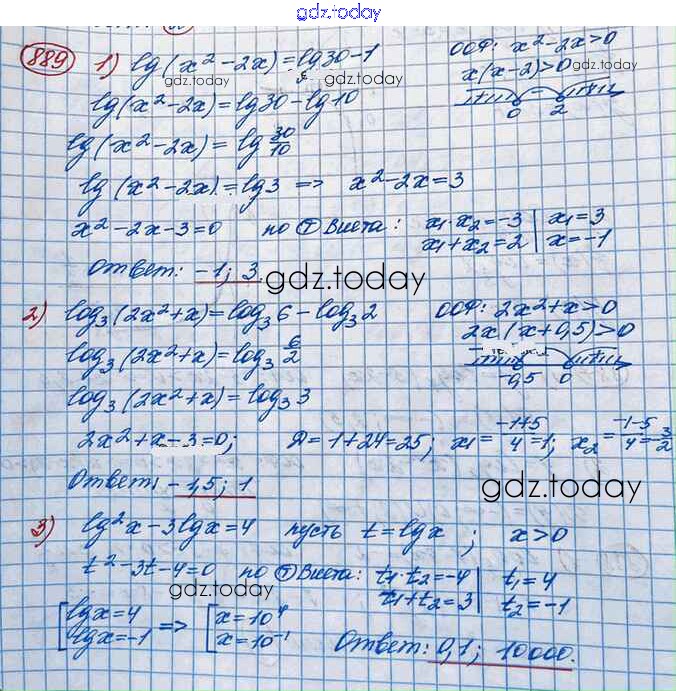 gdz.today
889 1) lg(x²-2x)=lg30-1 ООФ: x²-2x>0
gdz.today x(x-2)>0 gdz.today
lg(x²-2x)=lg30-lg10 0 2
lg(x²-2x)=lg 30/10
lg(x²-2x)=lg3 => x²-2x=3
x²-2x-3=0 по Т Виета: x₁·x₂=-3 | x₁=3
x₁+x₂=2 | x=-1
Ответ: -1; 3. gdz.today
2) log₃(2x²+x)=log₃6-log₃2 ООФ: 2x²+x>0
2x(x+0,5)>0
log₃(2x²+x)=log₃ 6/2 -0,5 0
log₃(2x²+x)=log₃3
2x²+x-3=0; Д=1+24=25; x₁=(-1+5)/4=1; x₂=(-1-5)/4=-3/2
Ответ: -1,5; 1 gdz.today
3) lg²x-3lgx=4 пусть t=lgx; x>0
t²-3t-4=0 по Т Виета: t₁·t₂=-4 | t₁=4
gdz.today t₁+t₂=3 | t₂=-1
[lgx=4 => [x=10⁴
[lgx=-1 [x=10⁻¹ Ответ: 0,1; 10000.
gdz.today